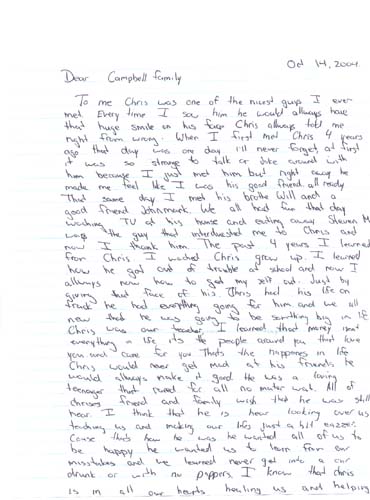 Oct 14, 2004
Dear Campbell family
To me Chris was one of the nicest guys I ever
met. Every time I saw him he would allways have
that huge smile on his face Chris allways told me
right from wrong. When I first met Chris 4 years
ago that day was one day I'll never forget, at first
it was so strange to talk or joke around with
him because I just met him but right away he
made me feel like I was his good friend all ready
That same day I met his brothe Will and a
good friend John mark. We all had fun that day
watching TV at his house and eating away. M
was the guy that to Chris and
now I thank him. The past 4 years I learned
from Chris I Chris grow up. I learned
how he got out of trouble at school and now I
allways now how to get my self out. Just by
giving that face of his. Chris had his life on
track he had everything going for him and we all
new that he was going to be big in life
Chris was our teacher. I learned that money isnt
everything in life, its the people around you that love
you and care for you Thats the in life
Chris would never get mad at his friends he
would allways make it good. He was a loving
teenager that cared for all no mater wat. All of
friend and family wish that he was still
hear. I think that he is hear looking over us
teaching us and making our lifs just a bit
Cause thats how he was he wanted all of us to
be happy he wanted us to learn from our
and we learned never get into a car
drunk or with no I know that chris
is in all our hearts healing us and helping